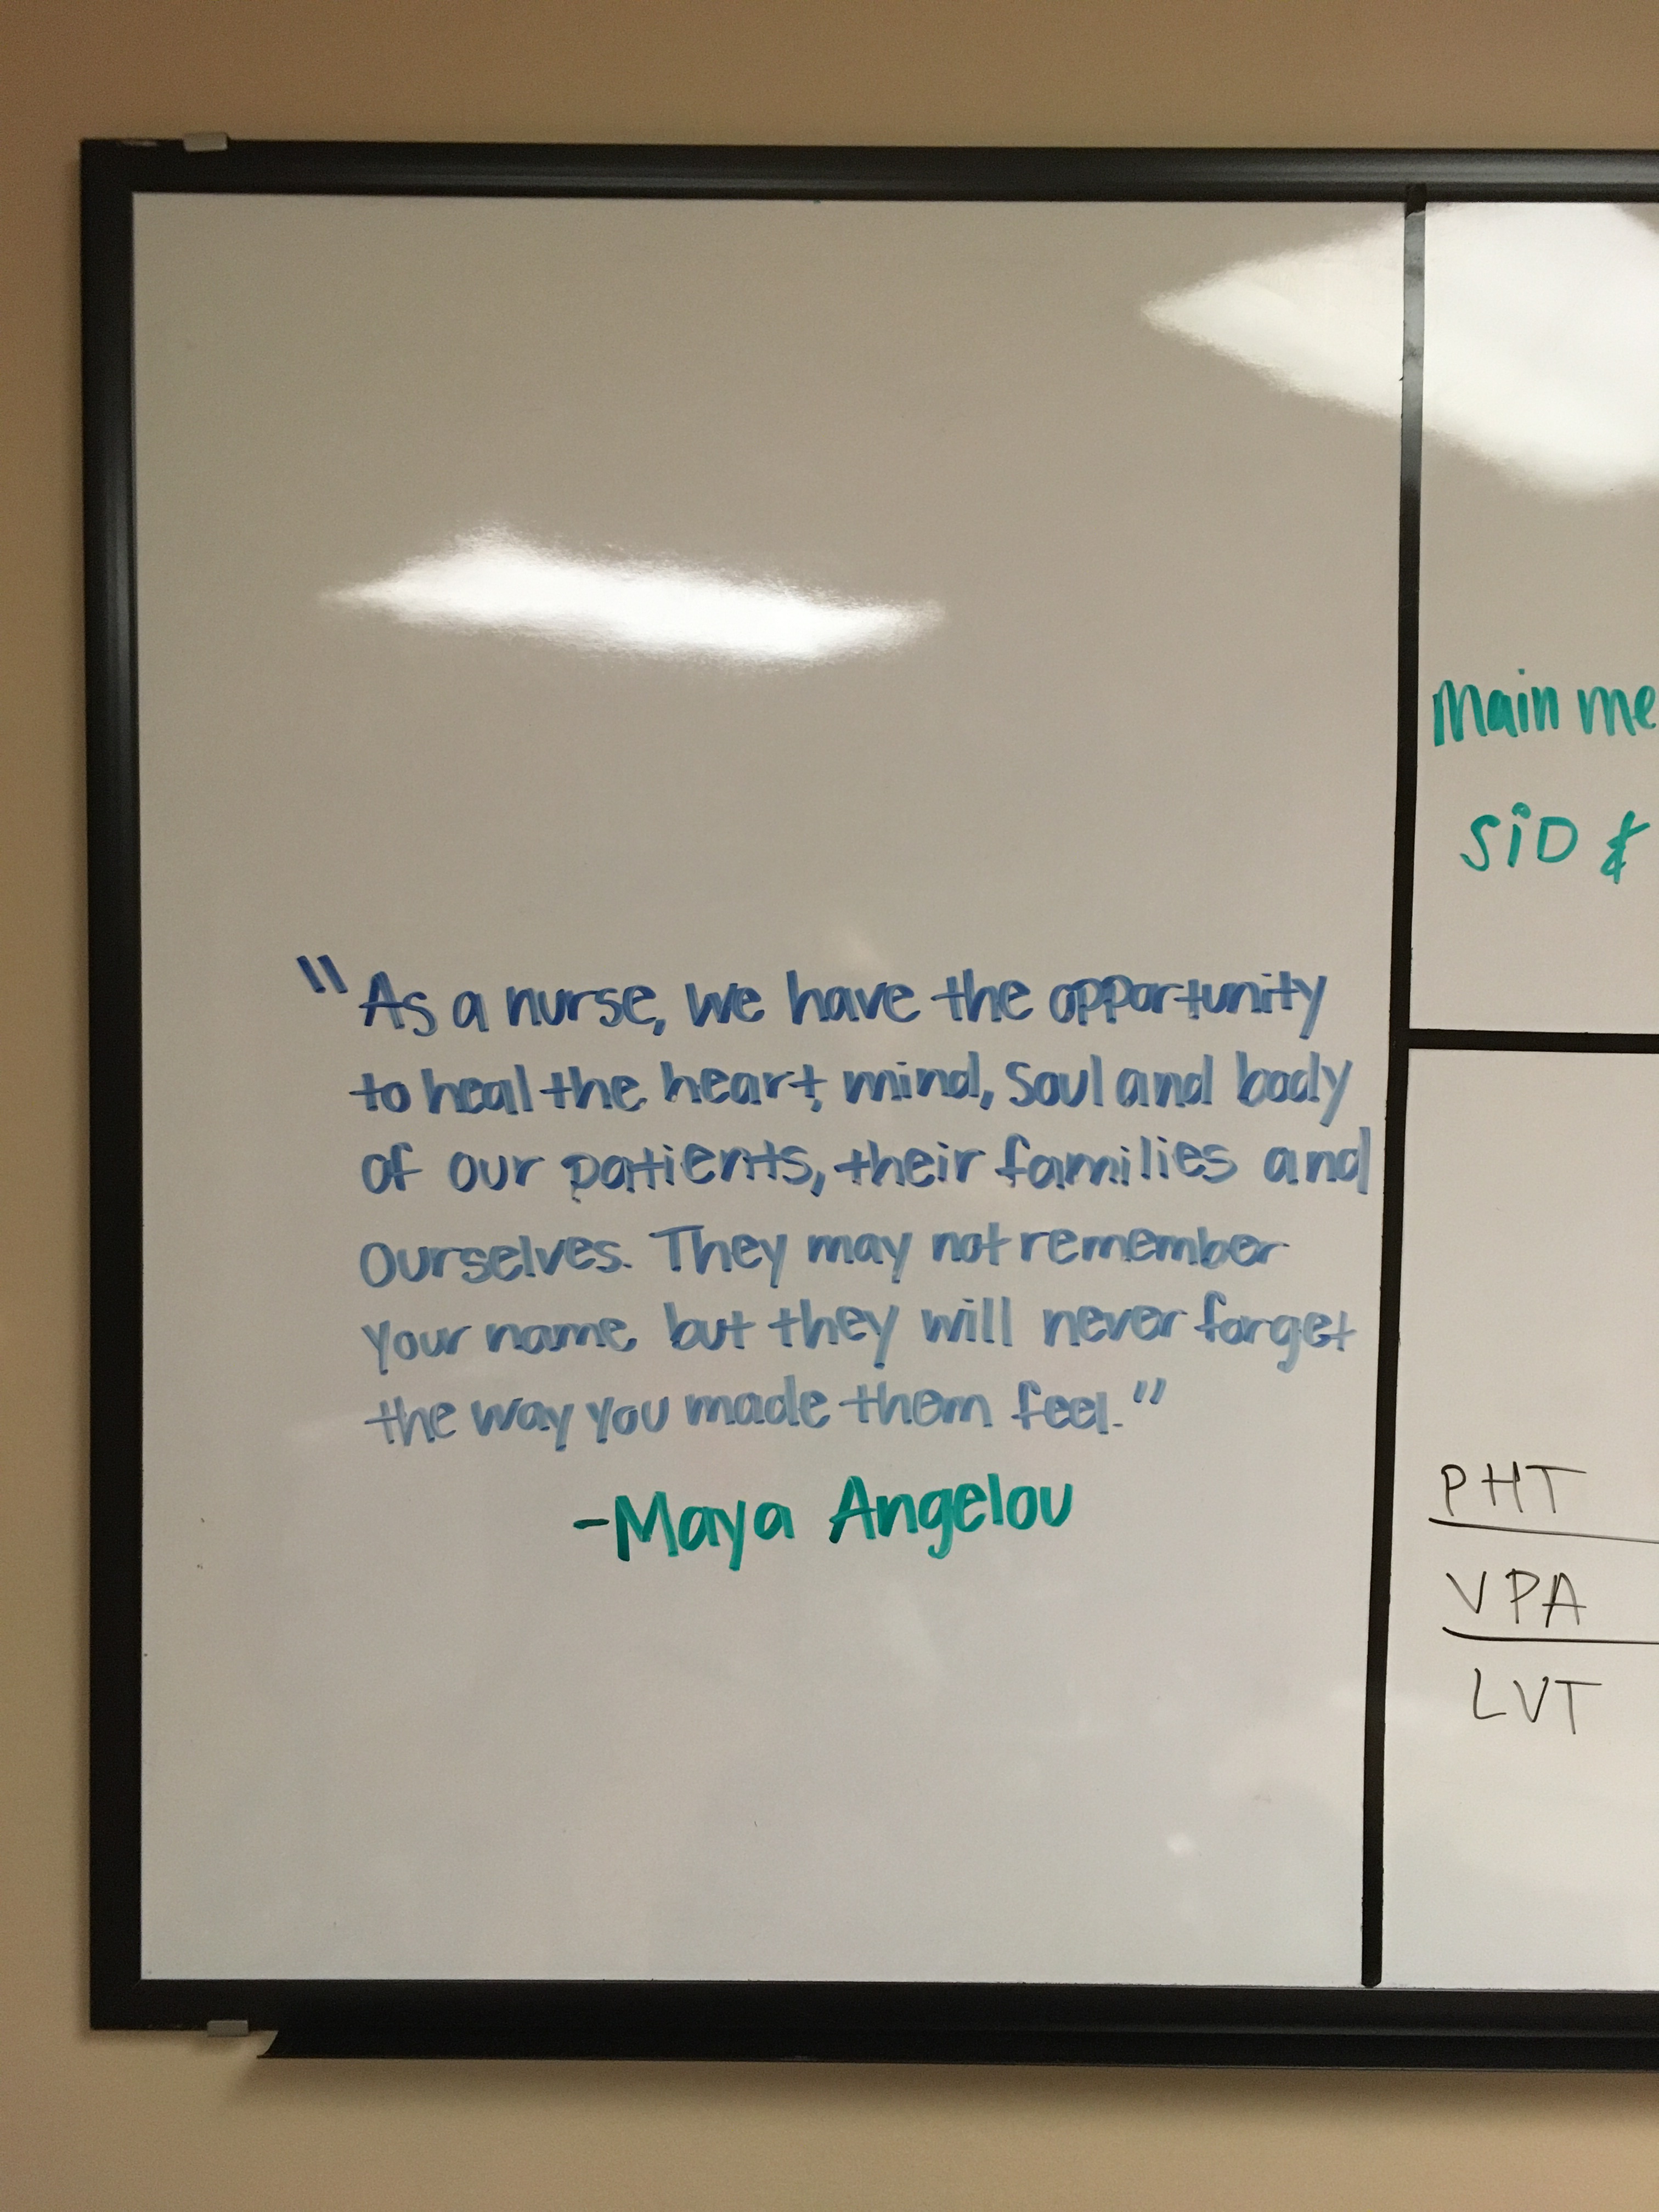 "As a nurse, we have the opportunity
to heal the heart, mind, soul and body
of our patients, their families and
ourselves. They may not remember
your name but they will never forget
the way you made them feel."
-Maya Angelou
Main me
SiD &
PHT
VPA
LVT